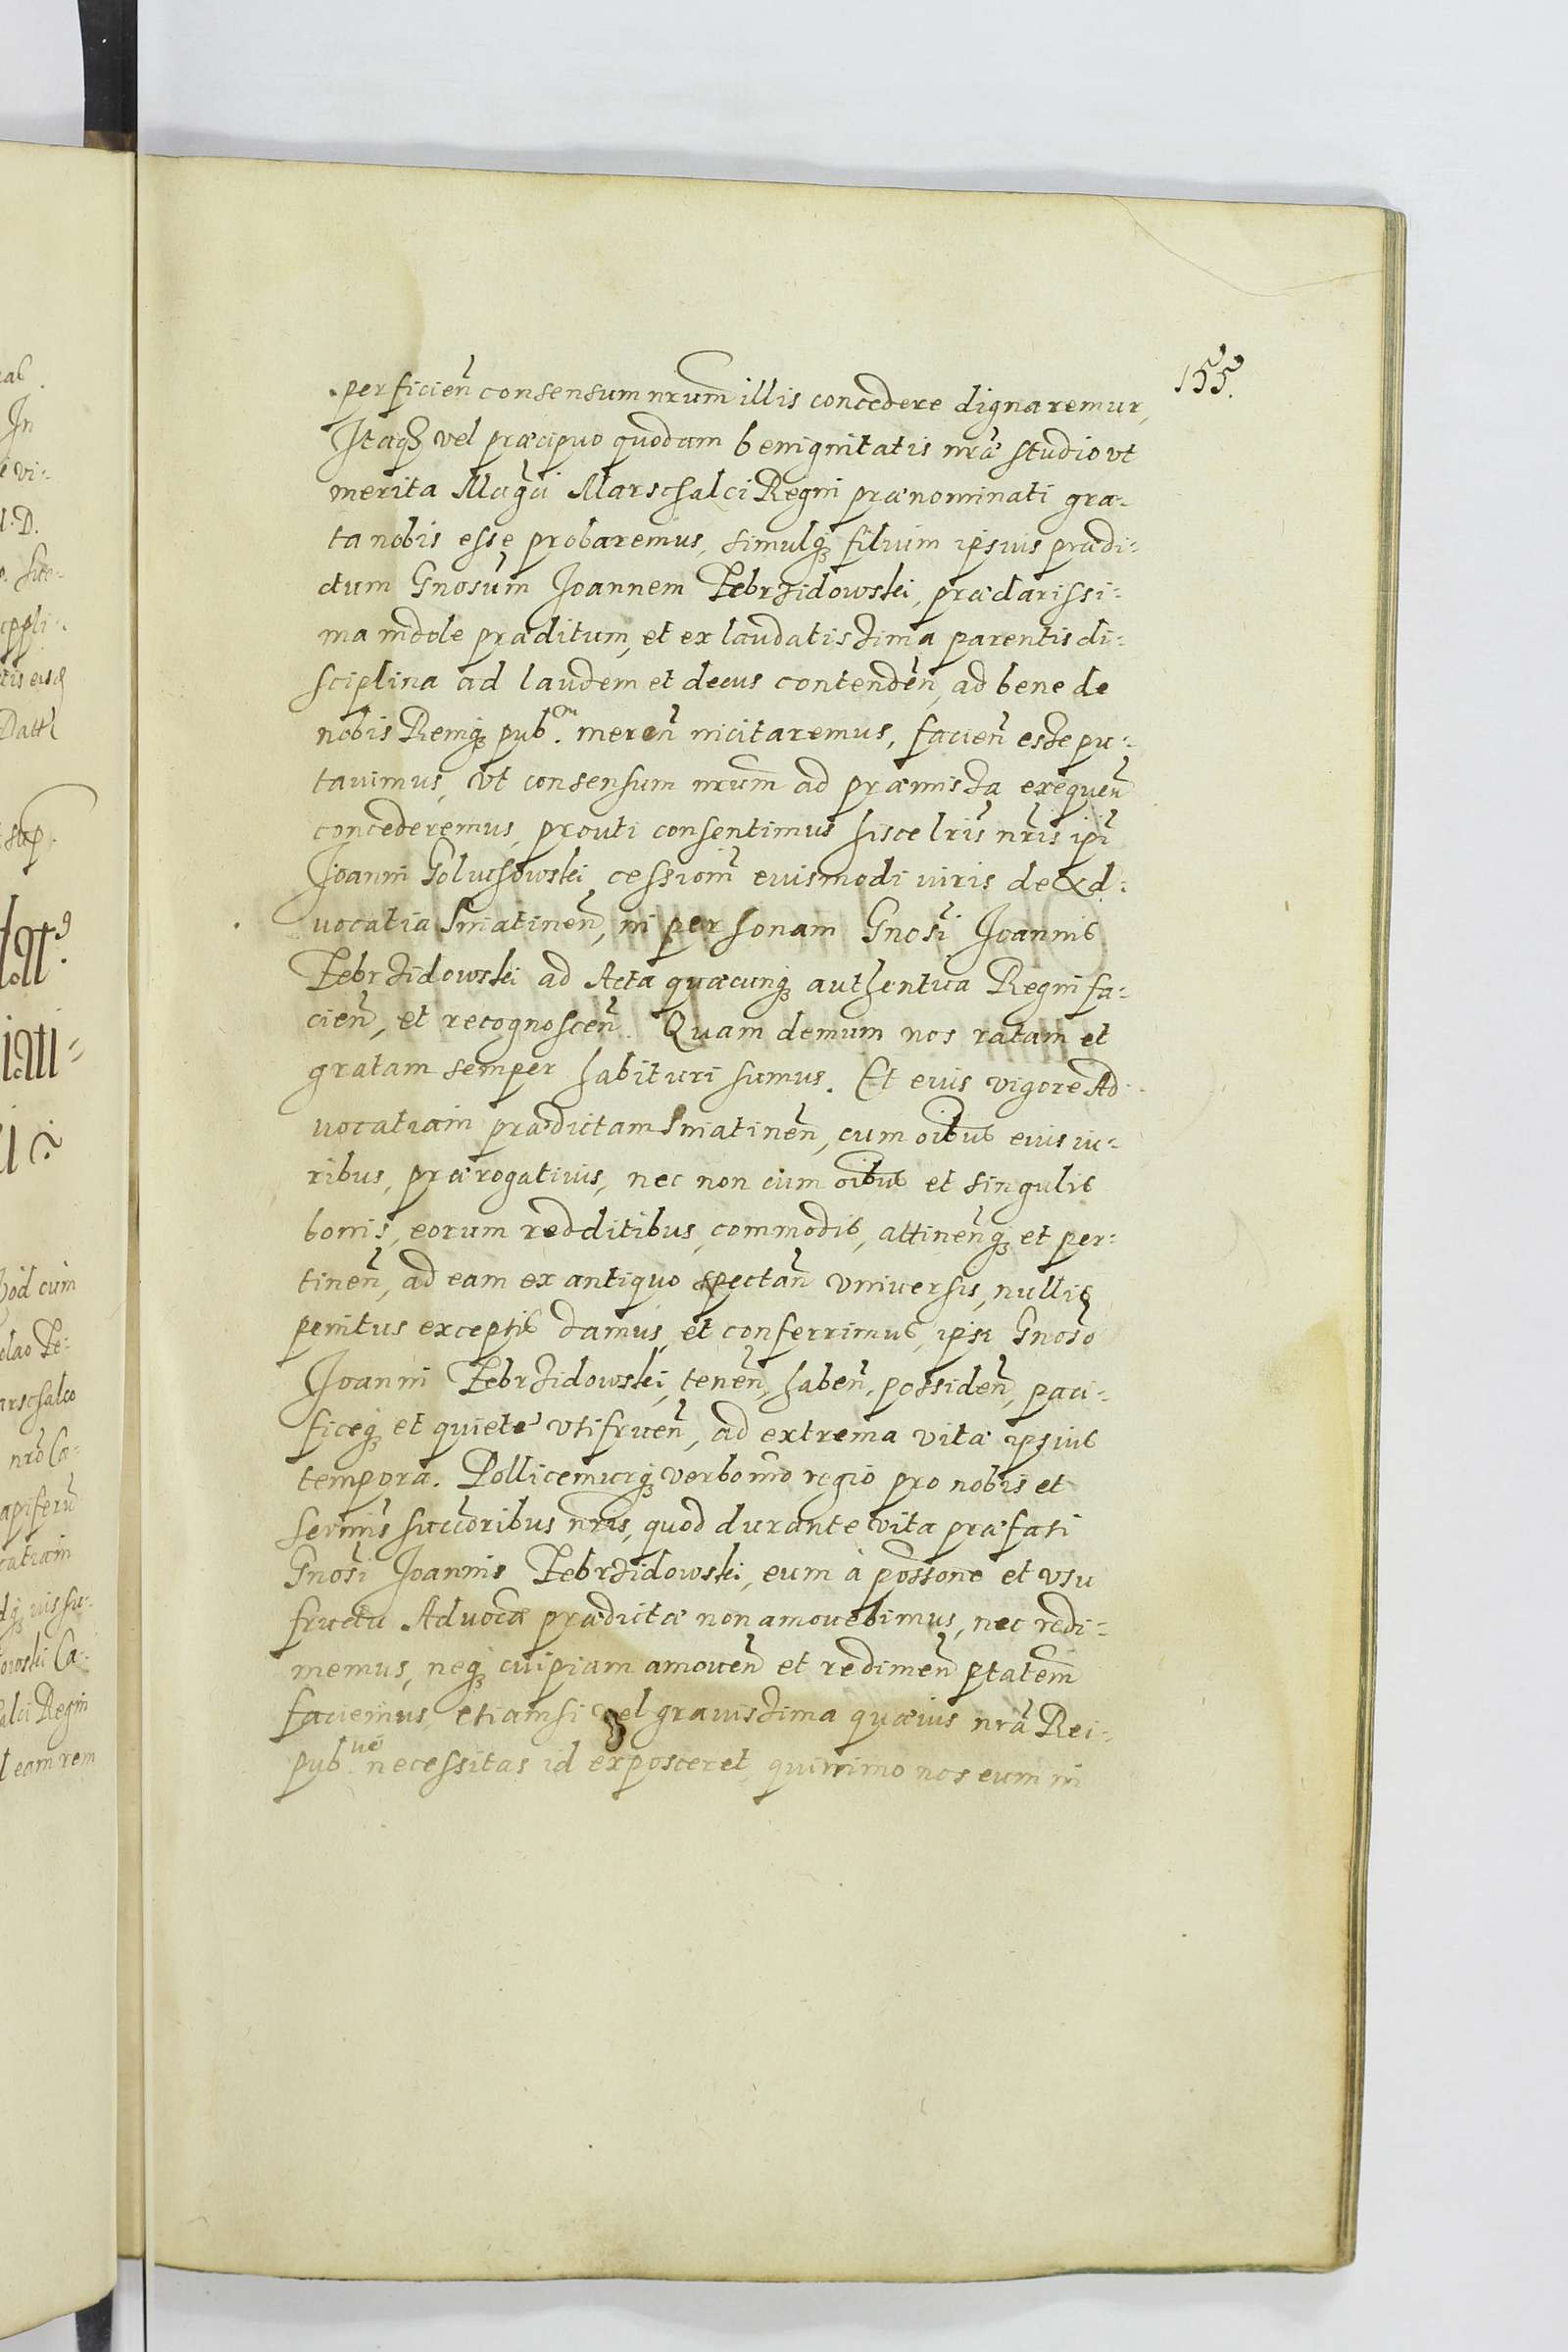 155.
perficien̄ consensum nrum̄ illis concedere dignaremur,
Itaqꝫ vel præcipuo quodam benignitatis nrǣ studio vt
merita Mag̃ci Marschalci Regni prænominati gra-
ta nobis esse probaremus, simulqꝫ filium ipsius prædi-
ctum Gnosum̄ Joannem Zebrzidowski, præclarissi-
ma indole præditum, et ex laudatissima parentis di-
sciplina ad laudem et decus contenden̄, ad bene de
nobis Remqꝫ pub.cm meren̄ incitaremus, facien̄ esse pu-
tauimus, vt consensum nrum̄ ad præmissa exequen̄
concederemus, prouti consentimus hisce lris̄ nris̄ ipī
Joanni Goluchowski cessioni̅ euismodi iuris de Ad-
uocatia Sniatinen̄, in personam Gnosi̅ Joannis
Zebrzidowski ad Acta quæcunqꝫ authentica Regni fa-
cien̄, et recognoscen̄. Quam demum nos ratam et
gratam semper habituri sumus. Et eius vigore Ad-
uocatiam prædictam Sniatinen̄, cum oib̄us eius iu-
ribus, prærogatiuis, nec non cum oib̄us et singulis
bonis, eorum redditibus, commodis, attinen̄qꝫ et per-
tinen̄, ad eam ex antiquo spectan̄ vniuersis, nullis
penitus exceptis damus, et conferrimus, ipsi Gnoso̅
Joanni Zebrzidowski, tenen̄, haben̄, possiden̄, paci-
ficeqꝫ et quiete vtifruen̄, ad extrema vitæ ipsius
tempora. Pollicemurqꝫ verbo nro̅ regio pro nobis et
sermis̄ succ̄oribus nris̄, quod durante vita præfati
Gnosi̅ Joannis Zebrzidowski, eum à poss̄one et vsu
fructu Aduocǣ prædictæ non amouebimus, nec redi-
memus, neqꝫ cuipiam amouen̄ et redimen̄ ptatem̄
faciemus, etiamsi vel grauissima quæuis nrā Rei-
pub.væ necessitas id exposceret, quinimo nos eum in